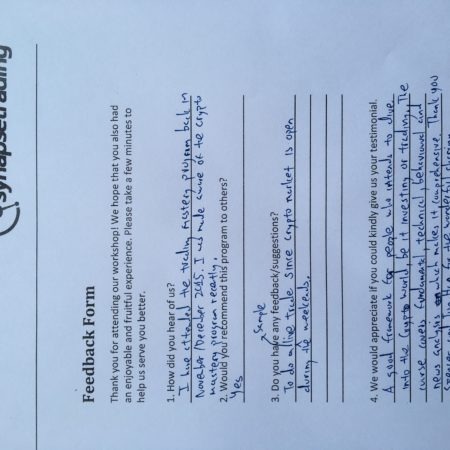 synapsetrading
Feedback Form
Thank you for attending our workshop! We hope that you also had
an enjoyable and fruitful experience. Please take a few minutes to
help us serve you better.
1. How did you hear of us?
I have attended the trading mastery program back in
November December 2015. I was made aware of the crypto
mastery program recently.
2. Would you recommend this program to others?
Yes
3. Do you have any feedback/suggestions?
sample
To do a live trade since crypto market is open
during the weekends.
4. We would appreciate if you could kindly give us your testimonial.
A good framework for people who intends to dive
into the Crypto world, be it investing or trading. The
course covers fundamental, technical, behavioural and
news analysis which makes it comprehensive. Thank you
Spencer and for the wonderful sharing